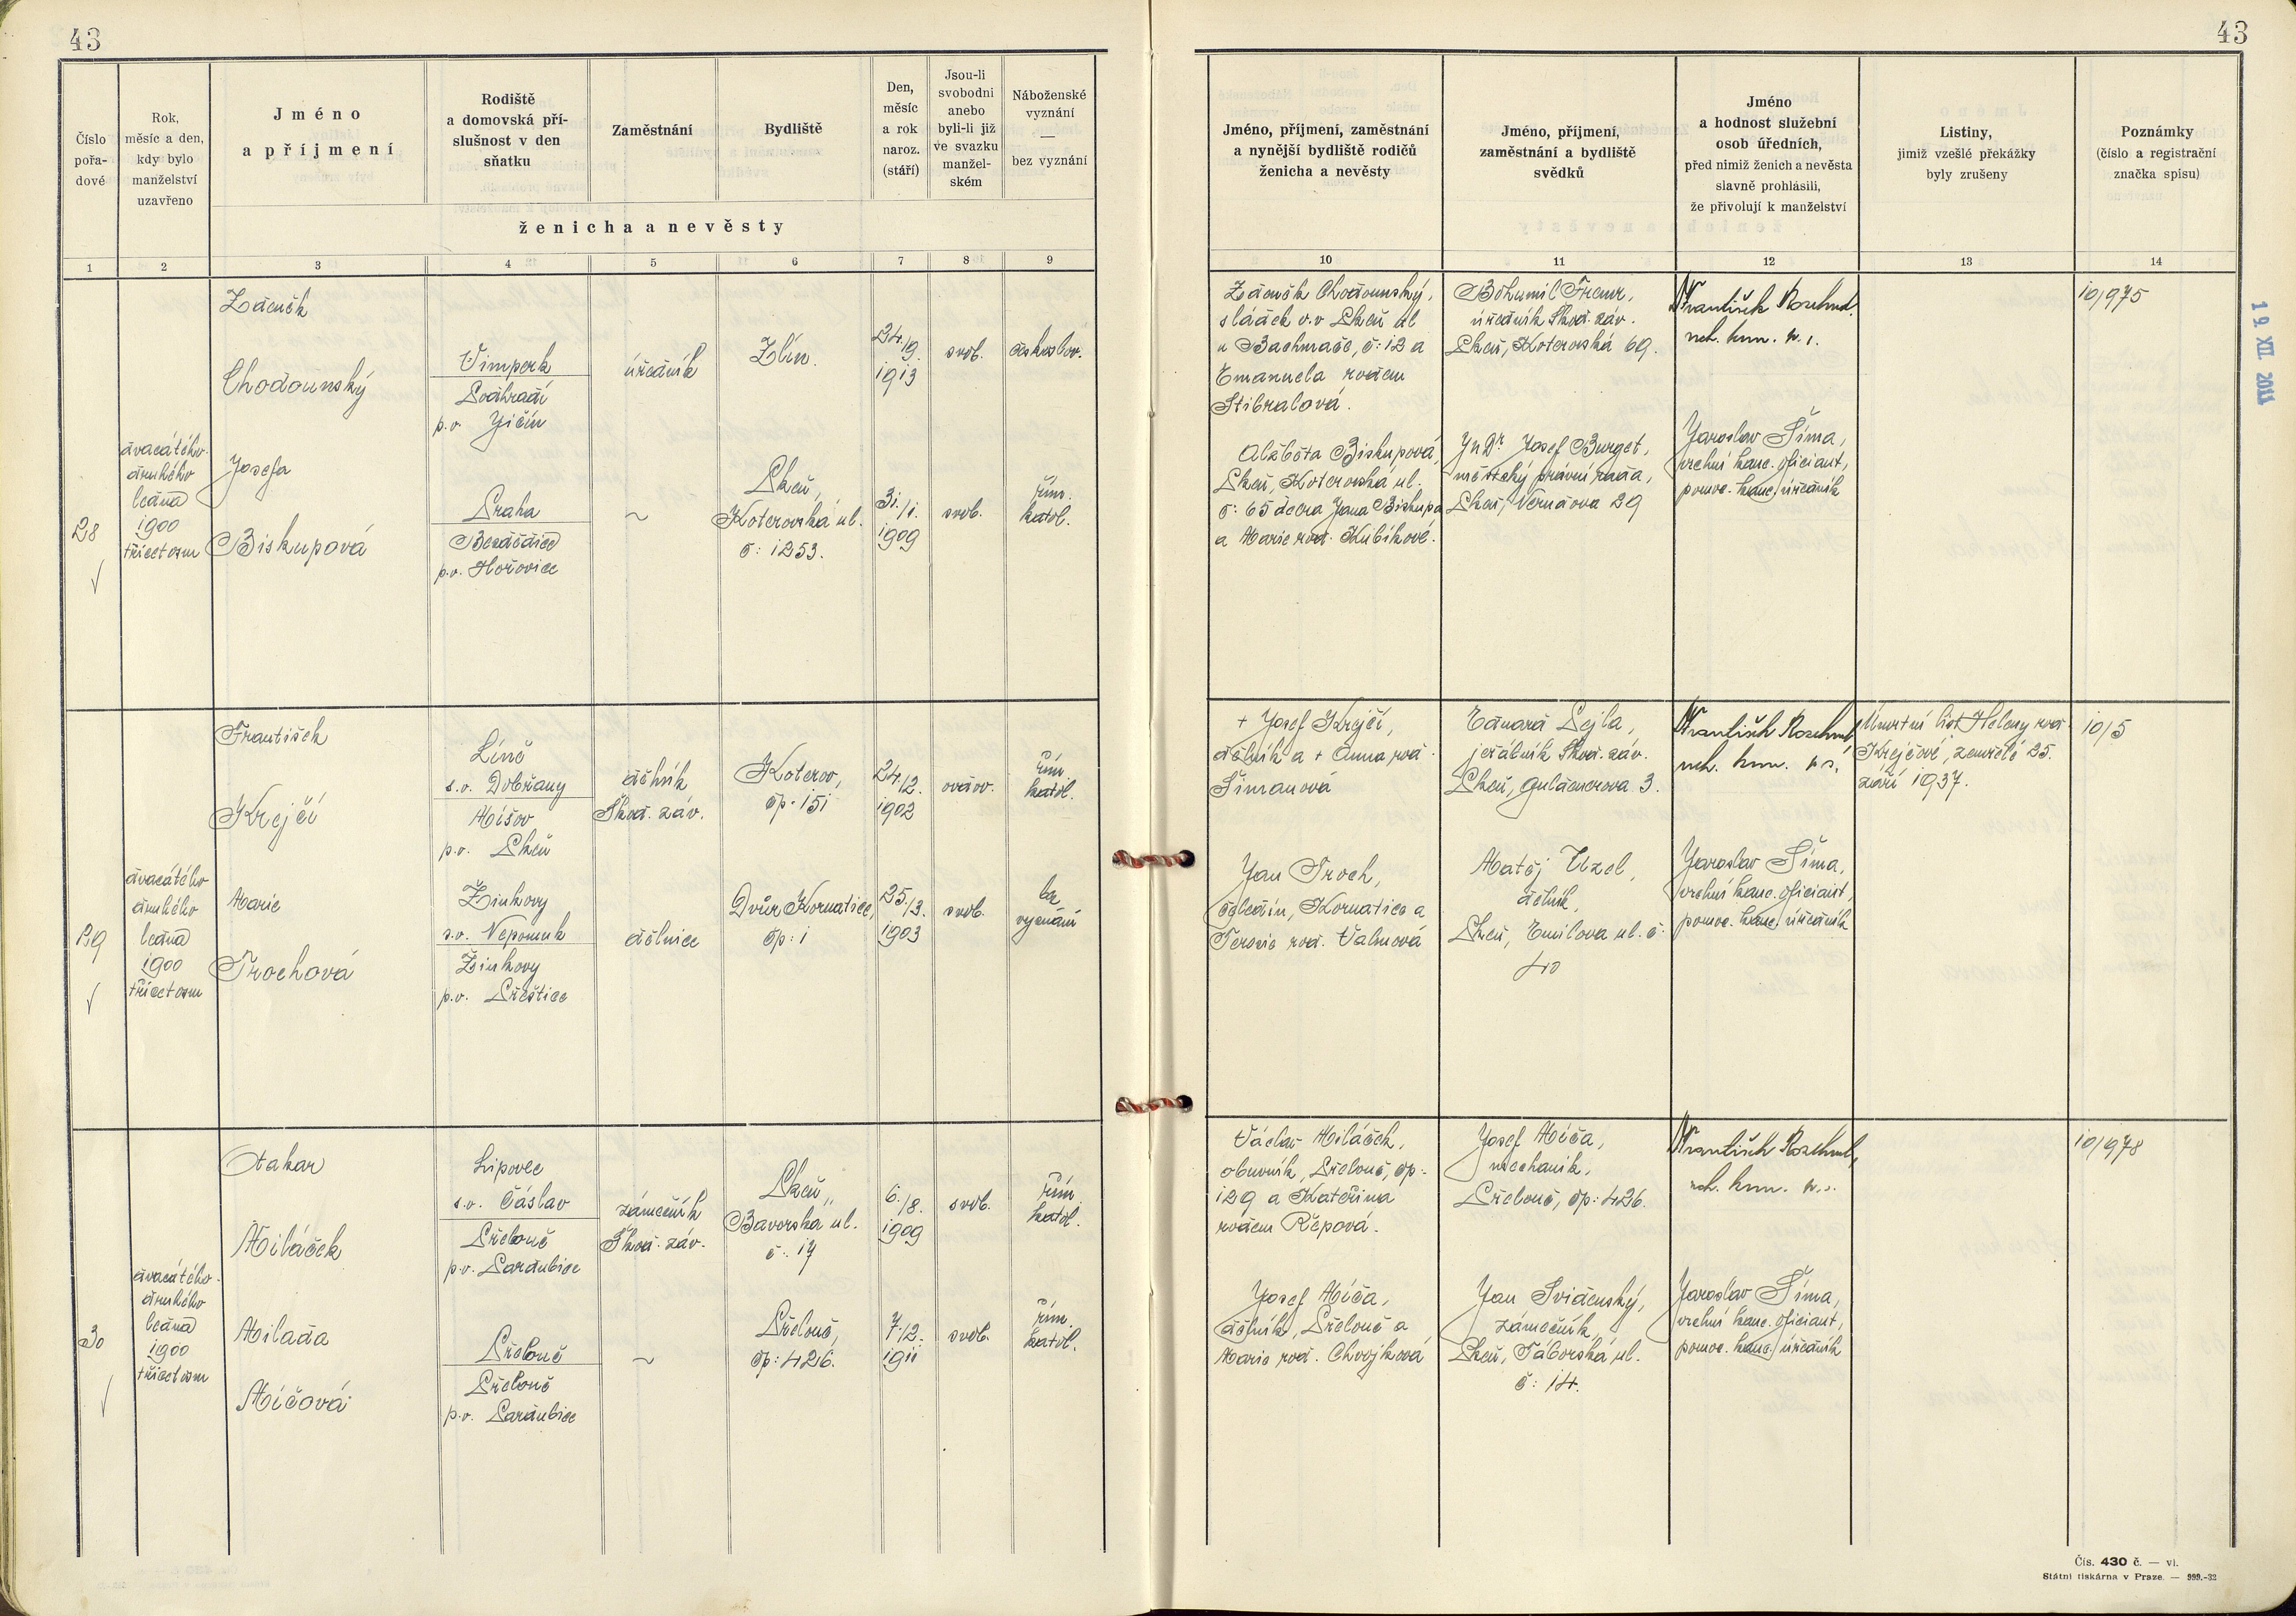 43
43
Číslo
pořa-
dové
Rok,
měsíc a den,
kdy bylo
manželství
uzavřeno
Jméno
a příjmení
Rodiště
a domovská pří-
slušnost v den
sňatku
Zaměstnání
Bydliště
Den,
měsíc
a rok
naroz.
(stáří)
Jsou-li
svobodni
anebo
byli-li již
ve svazku
manžel-
ském
Náboženské
vyznání
—
bez vyznání
ženicha a nevěsty
1 2 3 4 5 6 7 8 9
Jméno, příjmení, zaměstnání
a nynější bydliště rodičů
ženicha a nevěsty
Jméno, příjmení,
zaměstnání a bydliště
svědků
Jméno
a hodnost služební
osob úředních,
před nimiž ženich a nevěsta
slavně prohlásili,
že přivolují k manželství
Listiny,
jimiž vzešlé překážky
byly zrušeny
Poznámky
(číslo a registrační
značka spisu)
10 11 12 13 14
28
dvacátého
druhého
ledna
1900
třicet osm
Zdeněk
Chodounský
Vimperk
Podhradí
p.o. Jičín
úředník
Zlín.
24./9.
1913
svob.
českoslov.
Josefa
Biskupová
Praha
Bezdědice
p.o. Hořovice
~
Plzeň,
Koterovská ul.
č: 1253.
31./1.
1909
svob.
řím.
katol.
Zdeněk Chodounský,
sládek v.v Plzeň ul
u Bachmače, č: 12 a
Emanuela rozen
Stibralová.
Alžběta Biskupová,
Plzeň, Koterovská ul.
č: 65 dcera Jana Biskupa
a Marie roz. Kubíkové.
Bohumil
úředník Škod. záv.
Plzeň, Koterovská 69.
JUDr Josef Burget,
městský právní rada,
Plzeň, Nerudova 29
František
Jaroslav Šíma,
vrchní kanc. oficiant,
pomoc. kanc. úředník
10/975
19. XII. 2011
29
dvacátého
druhého
ledna
1900
třicet osm
František
Krejčí
Líně
s.o. Dobřany
Míšov
p.o. Plzeň
dělník
Škod. záv.
Koterov,
čp. 151
24./12.
1902
ovdov.
řím.
katol.
Marie
Trochová
Žinkovy
s.o. Nepomuk
Žinkovy
p.o. Přeštice
dělnice
Dvůr Kornatice,
čp: 1
25./3.
1903
svob.
bez
vyznání
+ Josef Krejčí,
dělník a + Anna roz.
Šimanová
Jan Troch,
čeledín, Kornatice a
Terezie roz. Valmová
Eduard Lejla,
jeřábník Škod. záv.
Plzeň, Guldenerova 3.
Matěj Uzel,
dělník,
Plzeň, Emilova ul. č:
40
František
Jaroslav Šíma,
vrchní kanc. oficiant,
pomoc. kanc. úředník
Úmrtní list Heleny roz.
Krejčové, zemřelé 25.
září 1937.
10/5
30
dvacátého
druhého
ledna
1900
třicet osm
Otakar
Miláček
Lipovec
s.o. Čáslav
Přelouč
p.o. Pardubice
zámečník
Škod. záv.
Plzeň,
Bavorská ul.
č: 17
6./8.
1909
svob.
řím.
katol.
Milada
Míčová
Přelouč
Přelouč
p.o. Pardubice
~
Přelouč,
čp: 426.
7./2.
1911
svob.
řím.
katol.
Václav Miláček,
obuvník, Přelouč, čp:
129 a Kateřina
rozen Řepová.
Josef Míča,
dělník, Přelouč a
Marie roz. Chvojková
Josef Míča,
mechanik,
Přelouč, čp: 426.
Jan Svidenský,
zámečník,
Plzeň, Táborská ul.
č: 14.
František
Jaroslav Šíma,
vrchní kanc. oficiant,
pomoc. kanc. úředník
10/978
Čís. 430 č. — vi.
Státní tiskárna v Praze. — 999.-32